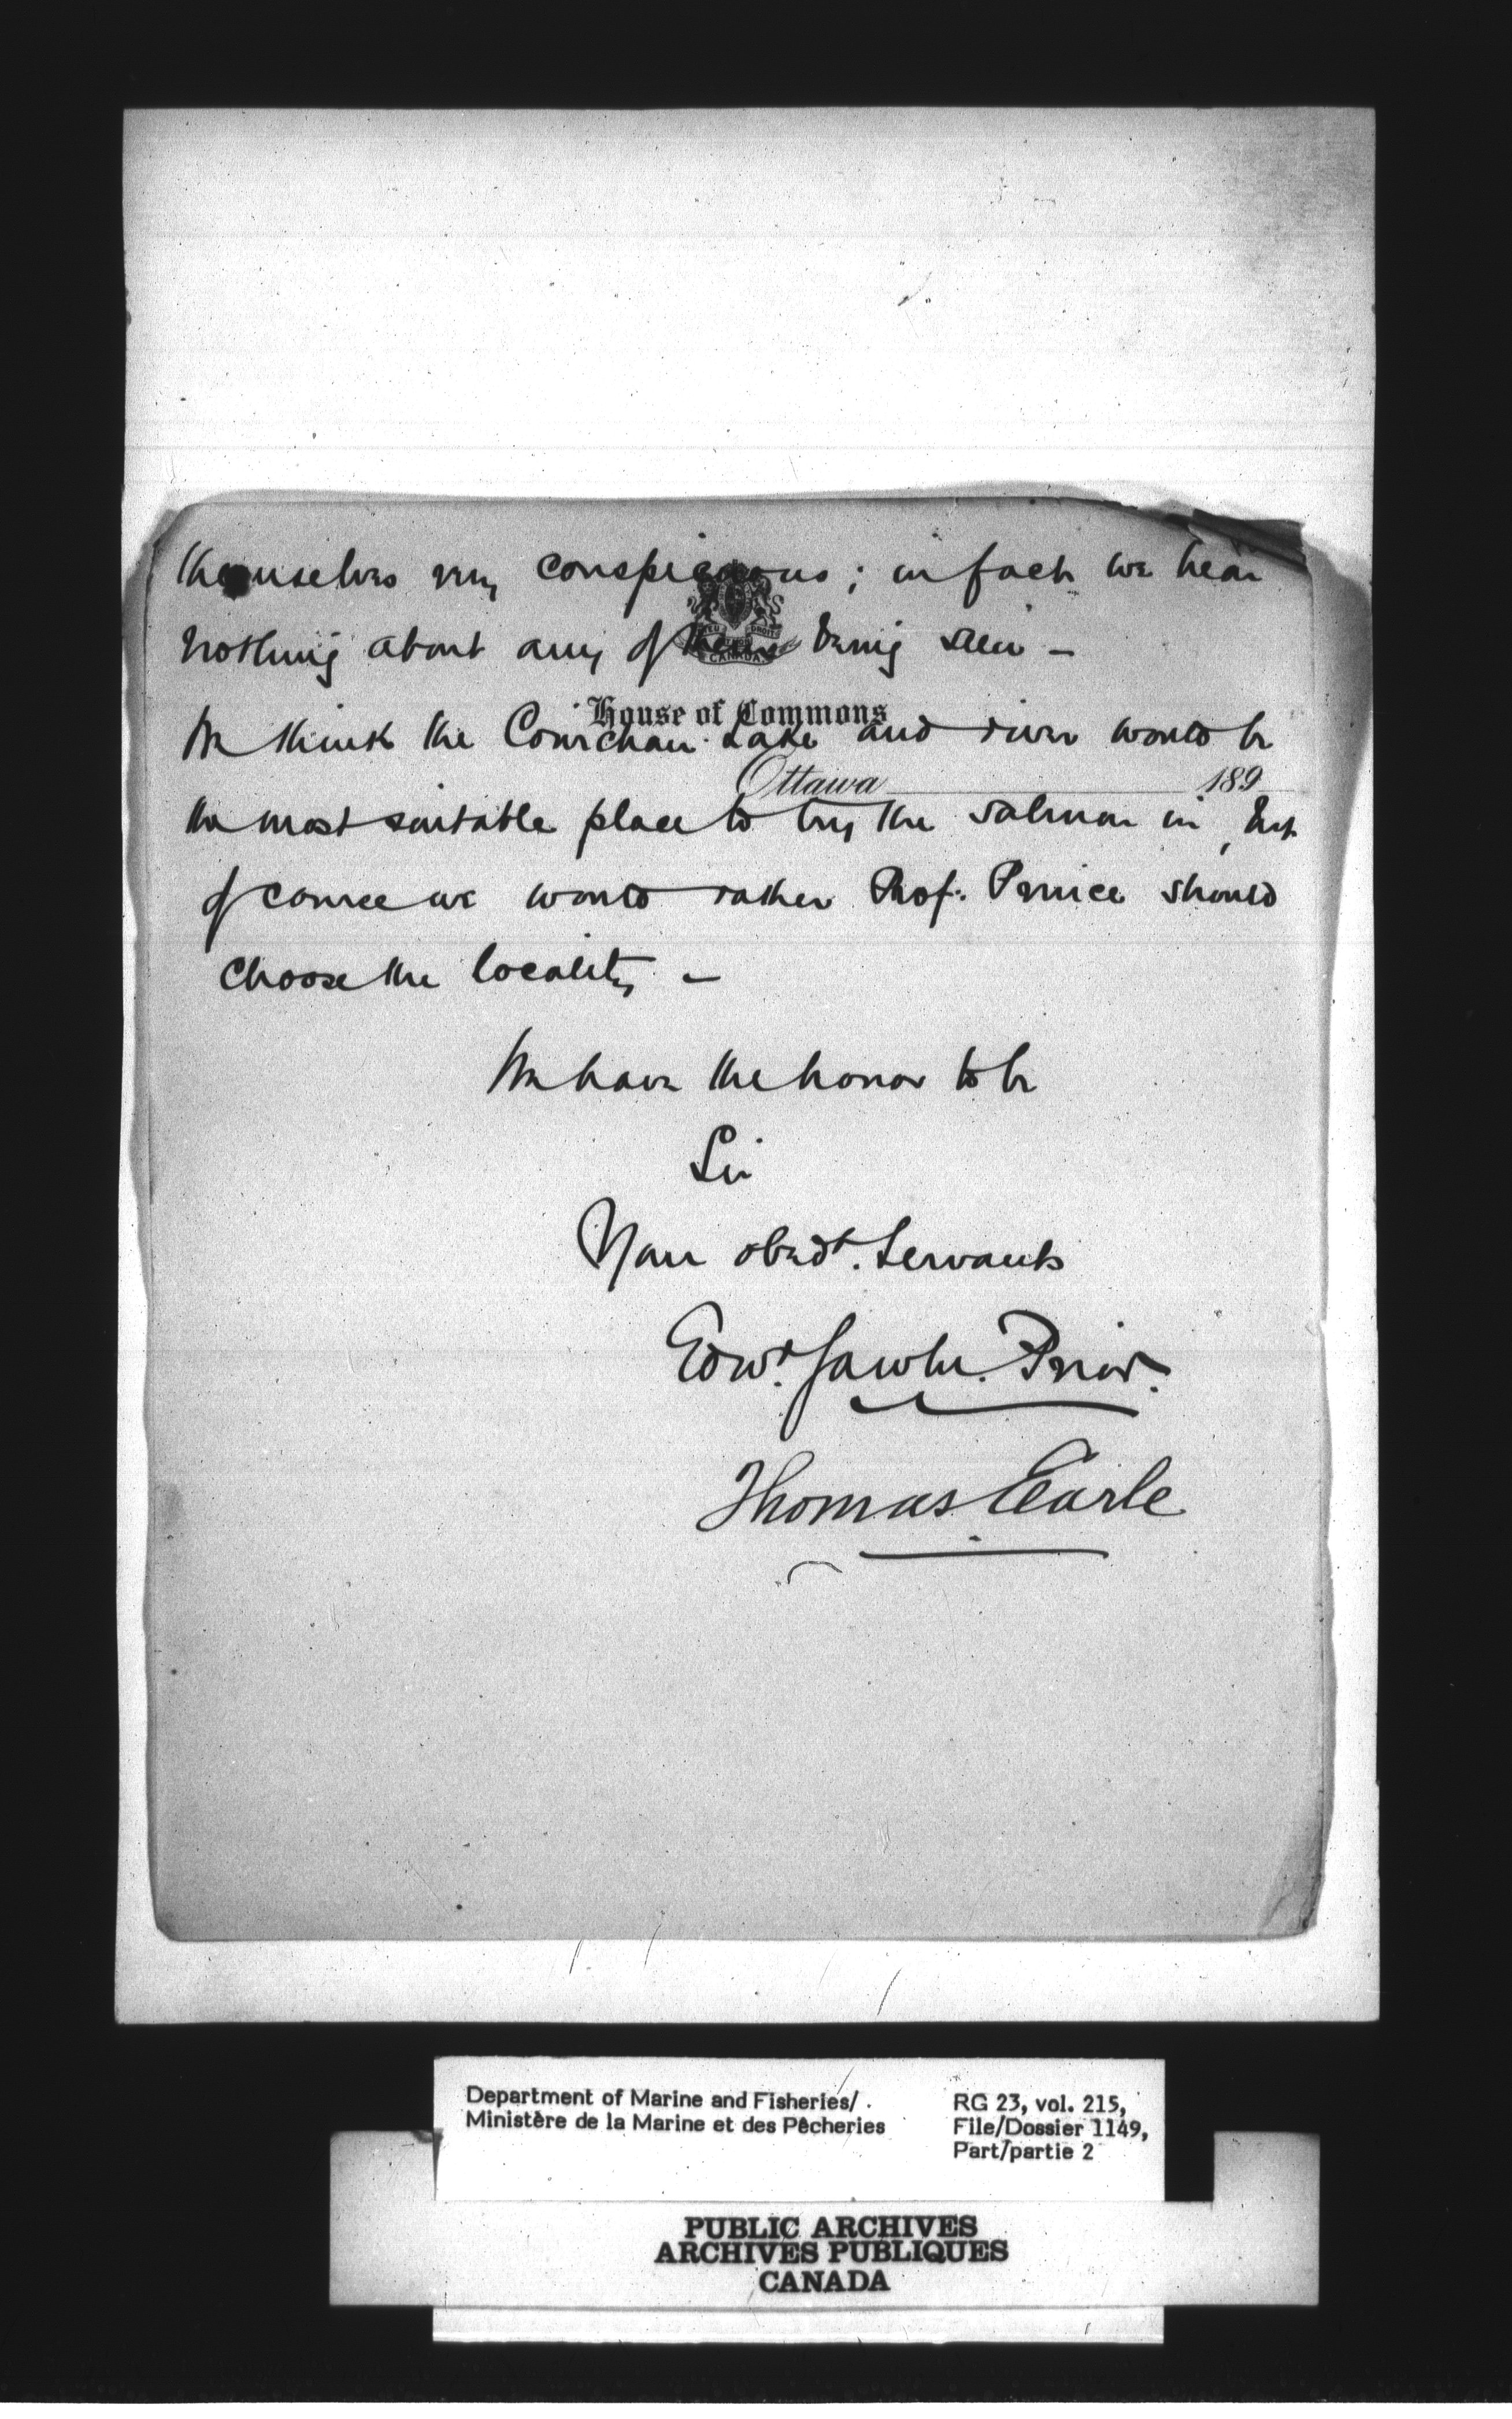 themselves very conspicuous; in fact we hear
nothing about any of them being seen —
House of Commons
We think the Cowichan Lake and river would be
Ottawa 189
the most suitable place to try the salmon in, but
of course we would rather Prof. Prince should
choose the locality —
We have the honor to be
Sir
Your obedt. Servants
Edwd. Gawler. Prior.
Thomas Earle
Department of Marine and Fisheries/
Ministère de la Marine et des Pêcheries
RG 23, vol. 215,
File/Dossier 1149,
Part/partie 2
PUBLIC ARCHIVES
ARCHIVES PUBLIQUES
CANADA